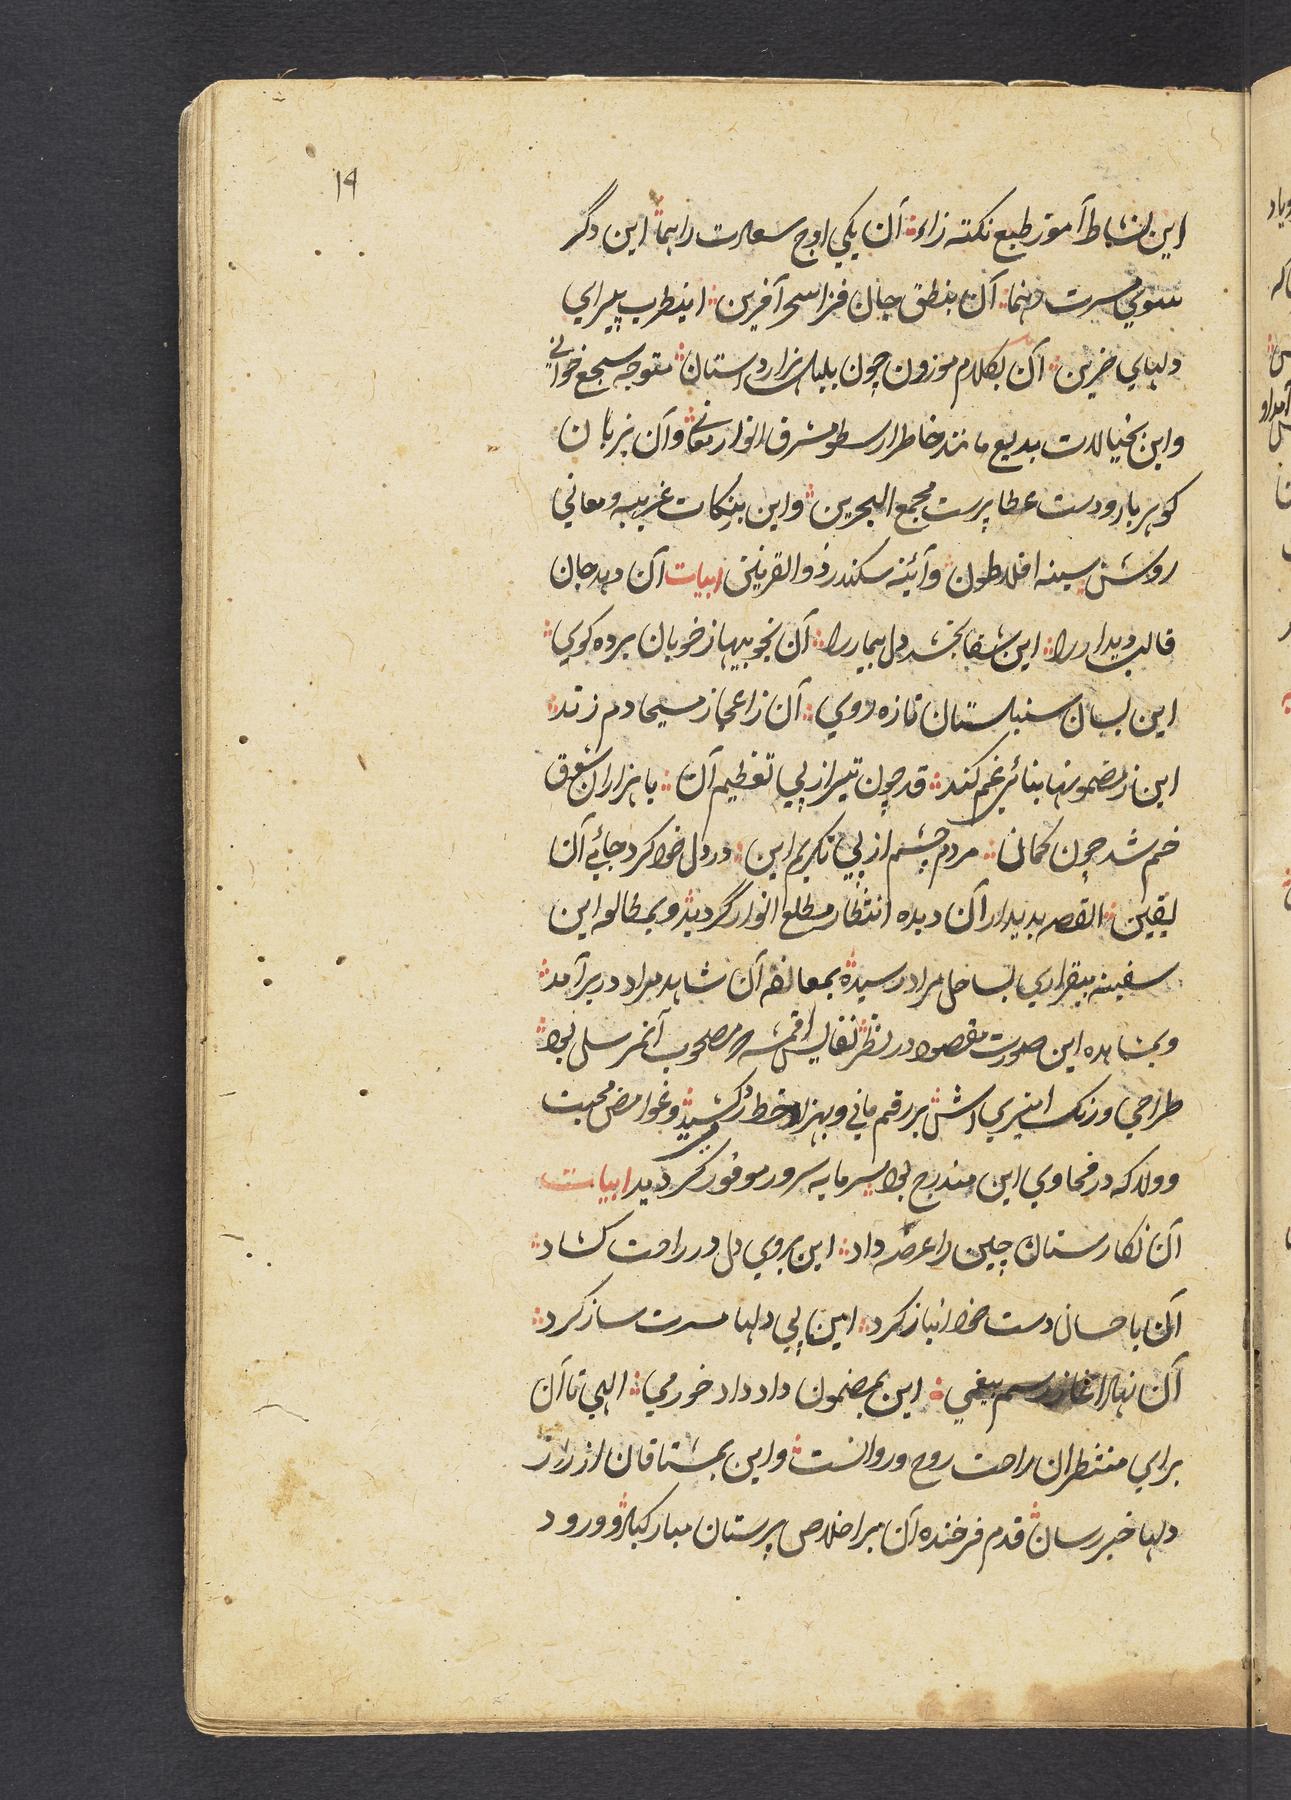 ۱۴
این نشاط آموز طبع نکته زاء آن یکی اوج سعادت را هما این دگر
سوی مسرت رهنما آن بنطق جان فزا سحر آفرین اینطرب پیرای
دلهای حزین آن بکلام موزون چون بلبل هزار دستان متوجه سجع خوانی
واین بخیالات بدیع مانند خاطر ارسطو مشرق انوار معانی وآن بزبان
کوهربار ودست عطا پرست مجمع البحرین واین بنکات غریبه ومعانی
روشن سینه افلاطون وآئینه سکندر ذوالقرنین ابیات آن دهد جان
قالب دیدار را این شفا بخشد دل بیمار را آن بخوبیها ز خوبان برده کوی
این بسان سنبلستان تازه روی آن ز اعجاز مسیحا دم زند
این ز مضمونها بنائی غم کند قد چون تیر از پی تعظیم آن با هزاران شوق
خم شد چون کمان مردم چشم از پی تکریم این در دل خود کرد جائی آن
یقین القصه بدیدار آن دیده انتظار مطلع انوار گردید وبمطالعه این
سفینه بیقراری بساحل مراد رسیده بمعانقه آن شاهد مراد در بر آمد
وبمشاهده این صورت مقصود در نظر نفایس اقمشه مصحوب آنمرسل بود
طراحی ورنک امیزی اش بر رقم مانی وبهزاد خط رد کشید وغوامض محبت
وولا که در فحاوی این مندرج بود سرمایه سرور موفور گردید ابیات
آن نکارستان چین را عرضه داد این بروی دل در راحت کشاد
آن باحسان دست خود انباز کرد این پی دلها مسرت ساز کرد
آن نهاد اغاز رسم بیغمی این بمضمون داد داد خورمی الهی تا آن
برای منتظران راحت روح وروانست واین بمشتاقان از راز
دلها خبر رسان قدم فرخنده آن بر اخلاص پرستان مبارکباد وورود